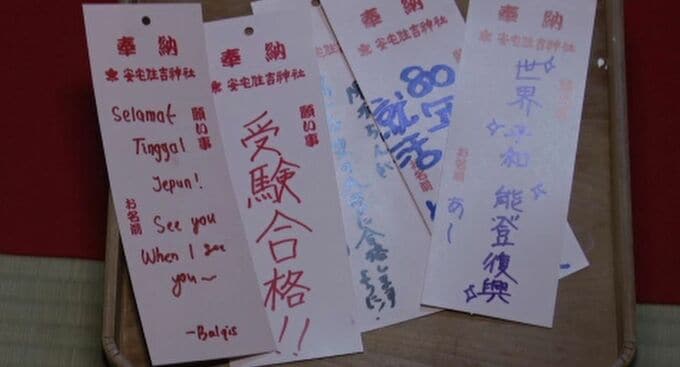 奉納
安宅住吉神社
願い事
Selamat
Tinggal
Jepun!
お名前
See you
When I see
you~
-Balqis
奉納
安宅住吉神社
願い事
受験合格!!
合格しますように!
奉納
安宅住吉神社
就活
お名前
奉納
安宅住吉神社
世界平和
能登復興
お名前
あー